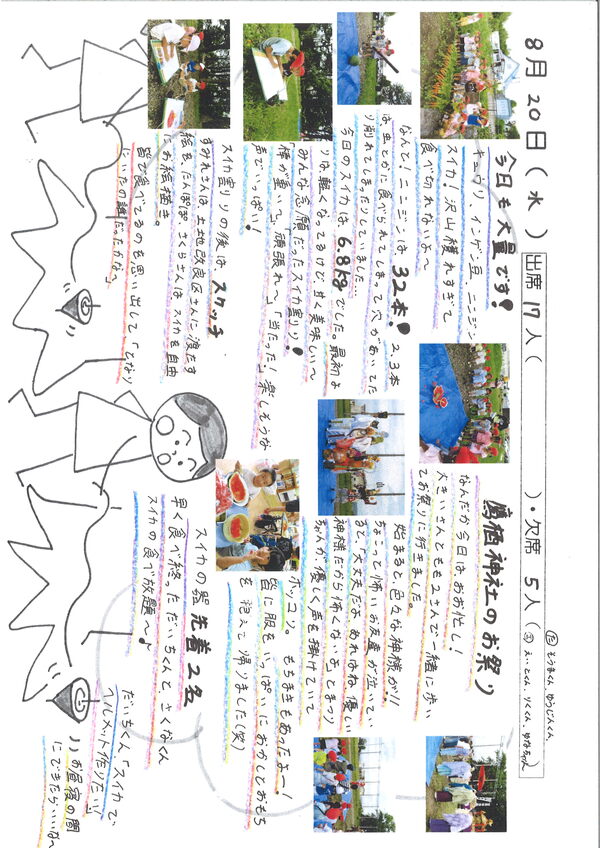 8月20日(水)
出席 17人( )・欠席 5人(
㋟ そうまくん、ゆうじんくん
㋓ えいとくん、りくくん、ゆなちゃん
今日も大量です!
キュウリ インゲン豆、ニンジン
スイカ!沢山穫れすぎて
食べ切れないよ~
なんと!ニンジンは32本! 2、3本
は虫とかに食べられてしまって穴があいてた
り削れてしまったりしていました
今日のスイカは、6.8kgでした。最初よ
りは軽くなってるけど甘く美味しい~
みんな念願だったスイカ割り!
「棒が重い」「頑張れ~」「当たった!」楽しそうな
声でいっぱい!
スイカ割りの後はスケッチ
すみれさんは、土地改良区さんに渡たす
絵を、たんぽぽ、さくらさんはスイカを自由
にお絵描き。
皆で食べてるのを思い出して「となり
にいたの誰だったかな~」
鷹栖神社のお祭り
なんだか今日は、おお忙し!
大きいさんともも2さんで一緒に歩い
てお祭りに行きました。
始まると色々な神様が!!
ちょっと怖いお友達が泣いてい
ると、「大丈夫だよ、あれはね優しい
神様だから怖くないよ」とまつり
ちゃんが優しく声を掛けていて
ホッコリ。もちまきもあったよー!
皆に服をいっぱいにおかしとおもち
を抱えて帰りました(笑)
スイカの器 先着2名
早く食べ終っただいちくんと、さくなくん
スイカの食べ放題~♪
だいちくん「スイカで
ヘルメット作りたい!」
♪♪お昼寝の間
にできたらいいな~